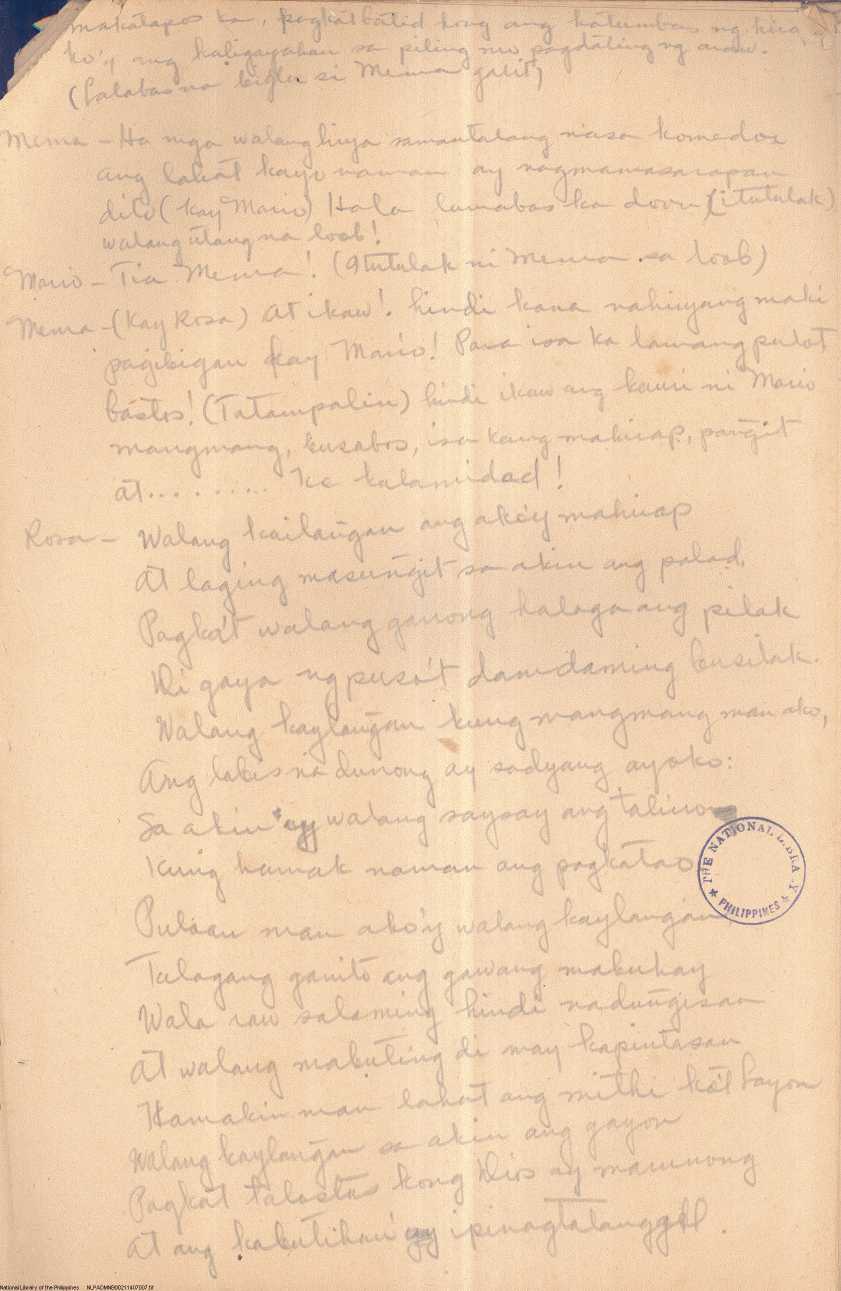 makatapos ka, pagkat batid kong ang katumbas ng hirap
ko'y ang kaligayahan sa piling mo pagdating ng araw.
(Lalabas na bigla si Mema galit)
Mema - Ha mga walang hiya samantalang nása komedor
ang lahat kayo naman ay nagmamasarapan
dito (kay Mario) Hala lumabas ka doon (itutulak)
walang utang na loob!
Mario - Tia Mema! (Itutulak ni Mema sa loob)
Mema - (Kay Rosa) At ikaw! hindi kana nahiyang maki
pagibigan kay Mario! Para isa ka lamang pulot
bastos! (Tatampalin) hindi ikaw ang kauri ni Mario
mangmang, busabos, isa kang mahirap, pangit
at.......... ke kalamidad!
Rosa - Walang kailangan ang ako'y mahirap
At laging masungit sa akin ang palad,
Pagka't walang ganong halaga ang pilak
Di gaya ng puso't damdaming busilak.
Walang kaylangan kung mangmang man ako,
Ang labis na dunong ay sadyang ayoko:
Sa akin ay walang saysay ang talino
Kung hamak naman ang pagkatao
Pulaan man ako'y walang kaylangan
Talagang ganito ang gawang mabuhay
Wala raw salaming hindi nadungisan
At walang mabuting di may kapintasan
Hamakin man lahat ang mithi ko't layon
Walang kaylangan sa akin ang gayon
Pagkat talastas kong Dios ay marunong
At ang kabutihan ay ipinagtatanggol.
THE NATIONAL LIBRARY
★ PHILIPPINES ★
National Library of the Philippines